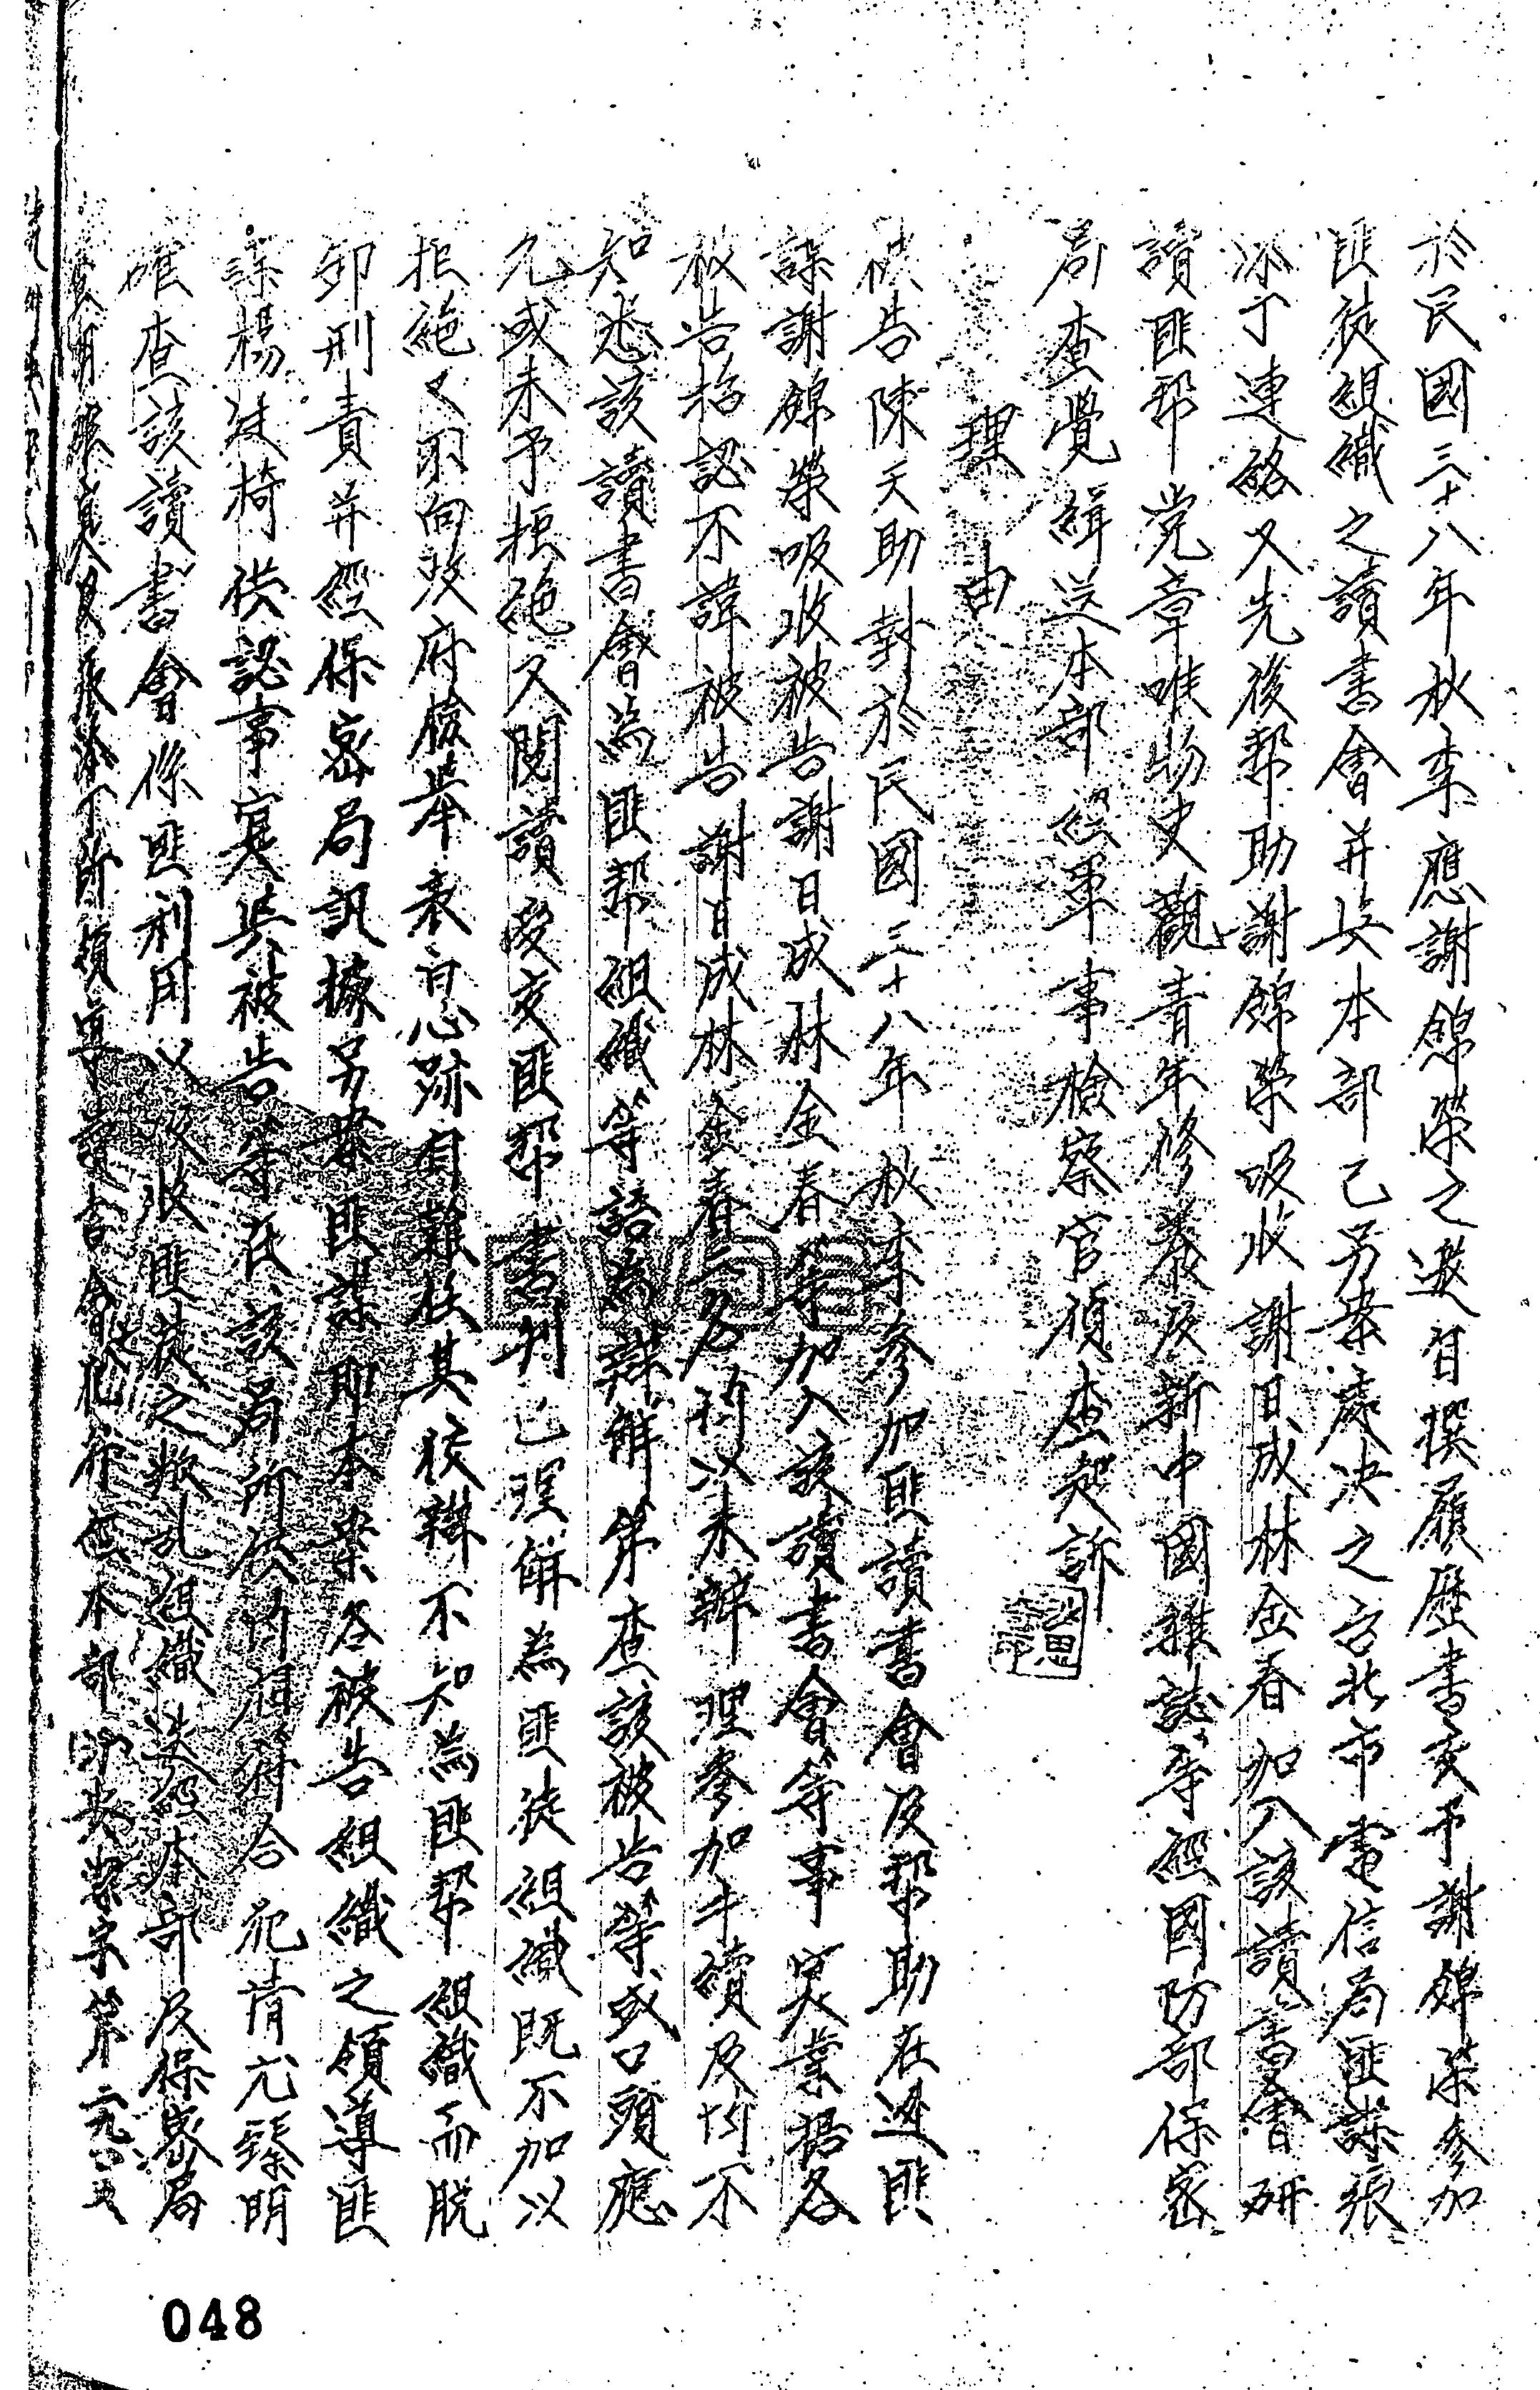 於民國三十八年秋季應謝錦榮之邀自撰履歷書交予謝錦榮參加
匪徒組織之讀書會并與本部已另案處決之台北市電信局匪諜張
添丁連絡又先後幫助謝錦榮吸收謝日成林金春加入該讀書會研
讀匪幫党章唯物史觀青年修養及新中國雜誌等經國防部保密
局查覺緝送本部經軍事檢察官偵查起訴
理由
被告陳天助對於民國三十八年秋季參加匪讀書會及幫助在逃匪
諜謝錦榮吸收被告謝日成林金春等加入該讀書會等事實業据各
被告招認不諱被告謝日成林金春二名所以未辦理參加手續及均不
知悉該讀書會為匪幫組織等語為辯解第查該被告等或口頭應
允或未予拒絕又閱讀段交匪幫書刊已理解為匪徒組織既不加以
拒絕又不向政府檢舉衷心跡自難任其狡辯不知為匪幫組織而脫
卸刑責并經保密局訊據另案匪諜即本案各被告組織之領導匪
諜楊廷椅供認事實與被告等在該局所供均相符合犯情尤臻明
確查該讀書會係匪利用以吸收匪徒之叛乱組織迭經本部及保密局
本部
048